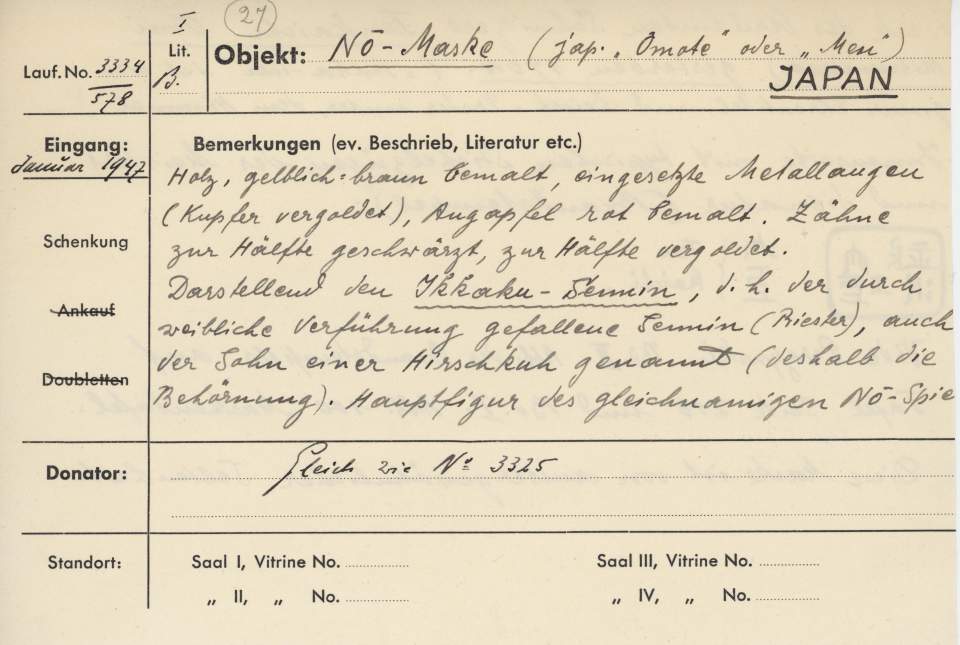 27
I
Lit.
B.
Objekt: Nō-Maske (jap. „Omote" oder „Men")
JAPAN
Lauf. No. 3334
578
Eingang:
Januar 1947
Schenkung
Ankauf
Doubletten
Bemerkungen (ev. Beschrieb, Literatur etc.)
Holz, gelblich=braun bemalt, eingesetzte Metallaugen
(Kupfer vergoldet), Augapfel rot bemalt. Zähne
zur Hälfte geschwärzt, zur Hälfte vergoldet.
Darstellend den Ikkaku-Sennin, d.h. der durch
weibliche Verführung gefallene Sennin (Priester), auch
der Sohn einer Hirschkuh genannt (deshalb die
Behörnung). Hauptfigur des gleichnamigen Nō-Spie
Donator: Gleich wie No 3325
Standort:
Saal I, Vitrine No.
„ II, „ No.
Saal III, Vitrine No.
„ IV, „ No.